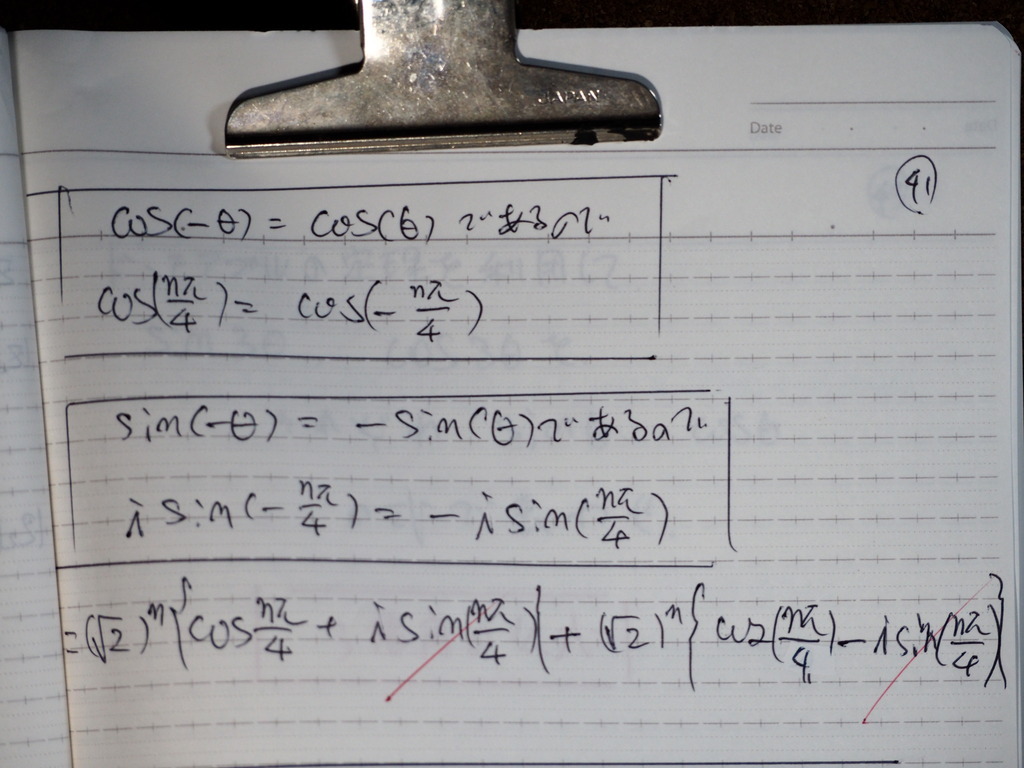 JAPAN
Date
41
cos(-θ) = cos(θ) であるので
cos(nπ/4) = cos(-nπ/4)
sin(-θ) = -sin(θ)であるので
i sin(-nπ/4) = -i sin(nπ/4)
=(√2)^n{cos nπ/4 + i sin(nπ/4)} + (√2)^n{cos(nπ/4) - i sin(nπ/4)}